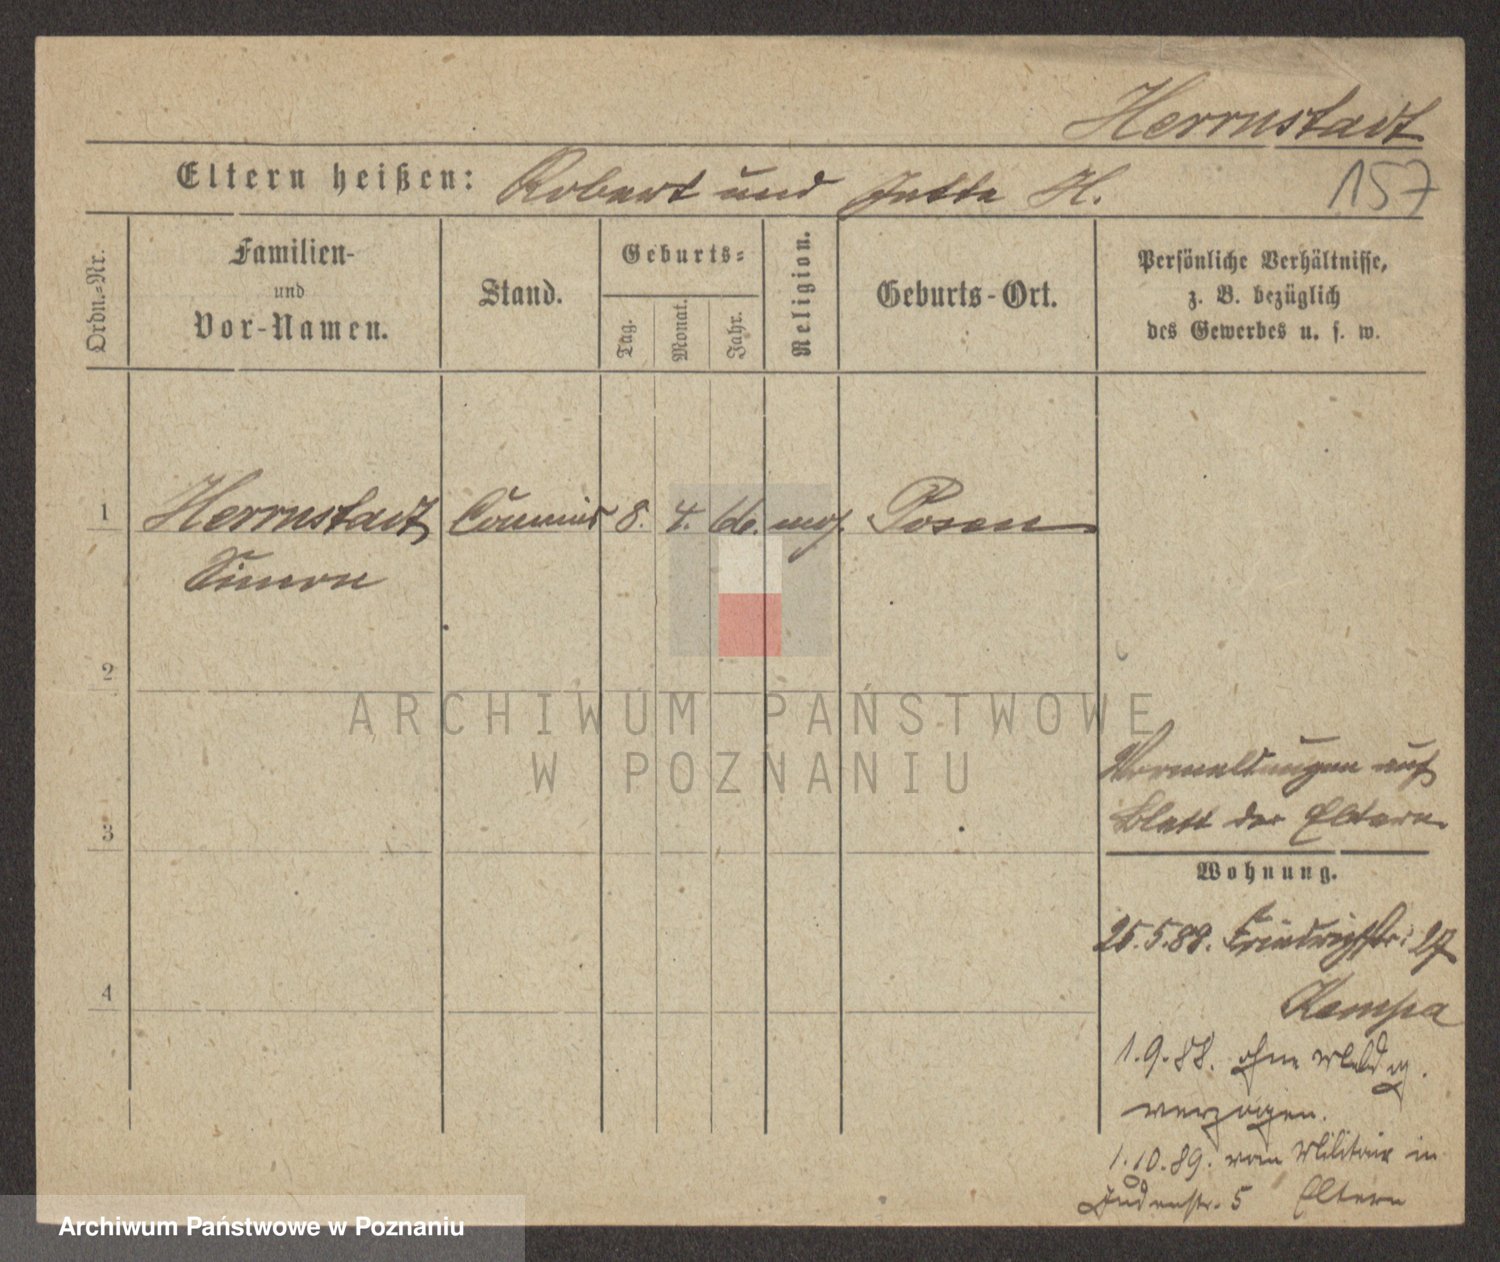 Herrnstadt
Eltern heißen: Robert und Jette H.
157
Ordn.-Nr.
Familien-
und
Vor-Namen.
Stand.
Geburts-
Tag.
Monat.
Jahr.
Religion.
Geburts-Ort.
Persönliche Verhältnisse,
z. B. bezüglich
des Gewerbes u. s. w.
1
Herrnstadt Commis 8. 4. 66. mos. Posen
Simon
2
ARCHIWUM PAŃSTWOWE
W POZNANIU
Vormeldungen auf
Blatt der Eltern.
3
Wohnung.
25.5.88. Friedrichstr. 27
Kempa
4
1.9.88. ohne Meldg.
verzogen.
1.10.89. vom Militair in
Judenstr. 5 Eltern
Archiwum Państwowe w Poznaniu